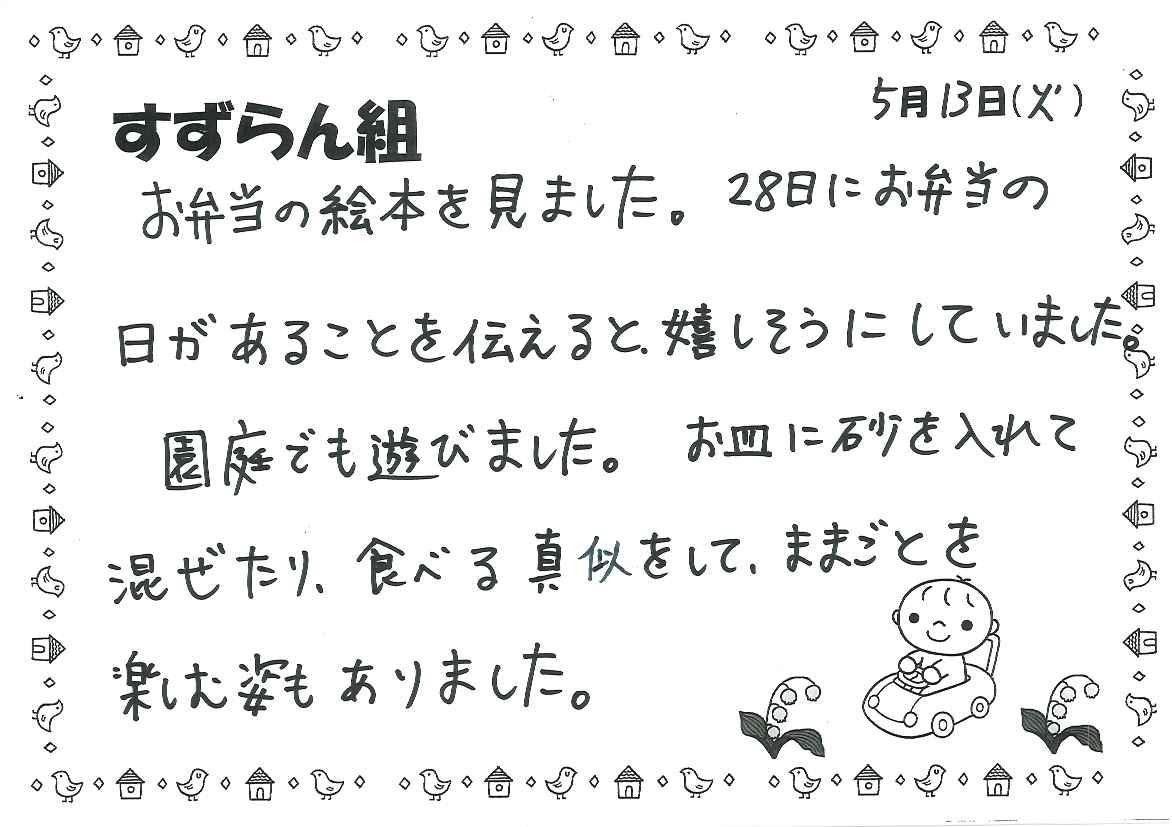 5月13日(火)
すずらん組
お弁当の絵本を見ました。 28日にお弁当の
日があることを伝えると、嬉しそうにしていました。
園庭でも遊びました。 お皿に砂を入れて
混ぜたり、食べる真似をして、ままごとを
楽しむ姿もありました。